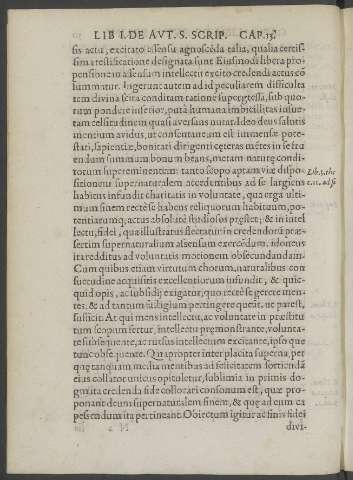 LIB I. DE AVT. S. SCRIP. CAP. 15.
sis actu, excitato assensu agnoscēda talia, qualia certis
sima testificatione designata sunt Eiusmodi libera pro-
pensione in assensum intellectu excito credendi actus cō
summatur. Ingerunt autem ad id peculiarem difficulta
tem divina scita conditam rationē supergressa, sub quo-
rum pondere infertior, putà humana imbecillitas inusi-
tam celsitudinem quasi aversans nutat. Ideo deus salutis
mentium avidus, ut consentaneum est immensæ pote-
stati, sapientiæ, bonitati dirigenti ceteras mētes in se fru
endum summum bonum beans, metam naturę condi-
torum supereminentem tanto scopo aptam viæ dispo-
sitionem supernaturalem accedentibus ad se largiens
habitus infundit charitatis in voluntate, qua erga ulti-
mum finem rectè se habens reliquorum habituum, po-
tentiarumq; actus absolutè studiosos præstet; & in intel
lectu, fidei, qua illustratus flectatur in credendorū præ-
sertim supernaturalium assensum exercēdum, idoneus
ita redditus ad voluntatis motionem obsecundandam.
Cum quibus etiam virtutum chorum, naturalibus con
suetudine acquisitis excellentiorum infundit, & quic-
quid opis, ac subsidij exigatur, quo rectè se gerere men-
tes, & ad tantum fastigium pertingere queāt, ut par est,
sufficit. At qui mens intellectu, ac voluntate in præstitu
tum scopum fertur, intellectu præmonstrante, volunta-
te subsequente, ac rursus intellectum excitante, ipso que
tunc obsequente. Quapropter inter placita superna, per
quę tanquam media mentibus ad felicitatem sortiendā
eius collator unicus opituletur, sublimia in primis do-
gmata credenda fide collocari consonum est, quæ pro-
ponant deum supernaturalem finem, & quę ad eum ca
pessendum ita pertineant. Obiectum igitur ac finis fidei
divi-